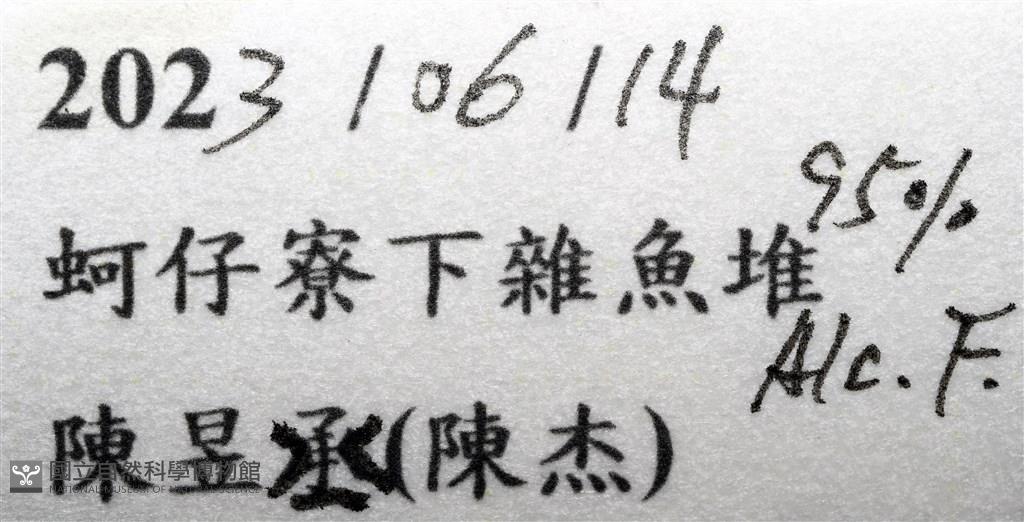 2023/06/14
95%
蚵仔寮下雜魚堆
Alc. F.
陳昱承(陳杰)
國立自然科學博物館
NATIONAL MUSEUM OF NATURAL SCIENCE